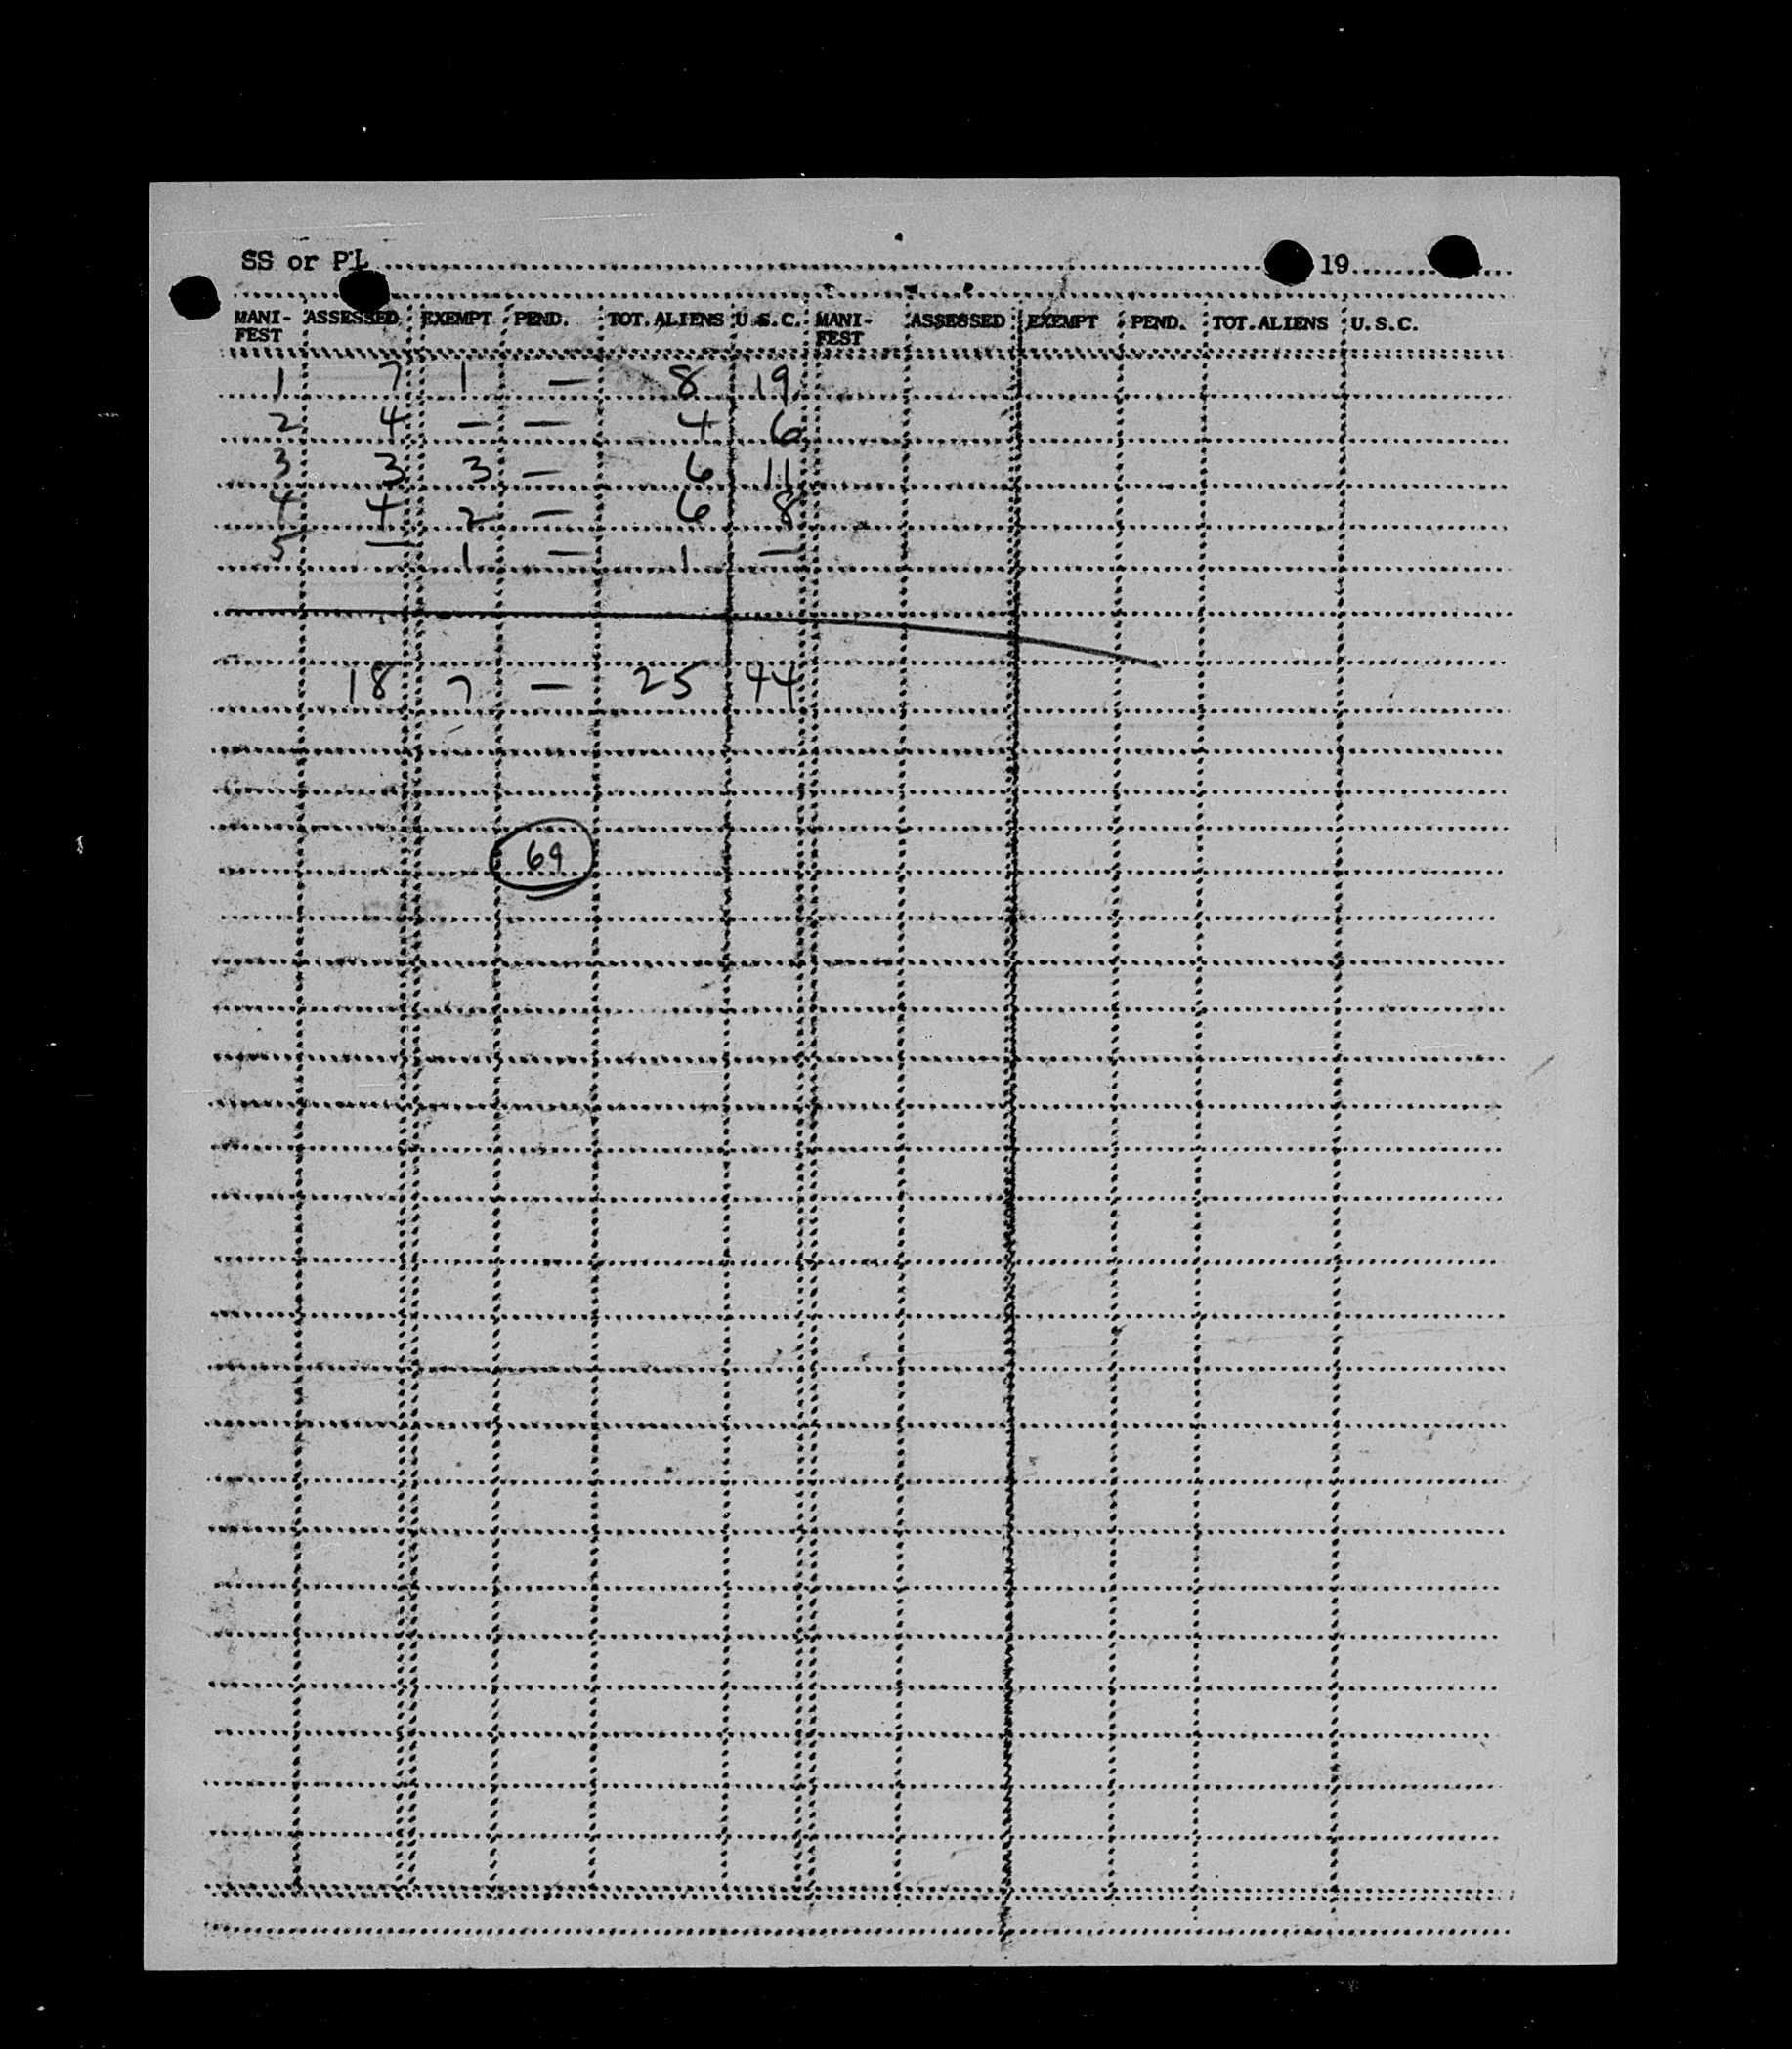 SS or PL 19
MANI- ASSESSED EXEMPT PEND. TOT. ALIENS U.S.C. MANI- ASSESSED EXEMPT PEND. TOT. ALIENS U.S.C.
FEST FEST
1 7 1 — 8 19
2 4 — — 4 6
3 3 3 — 6 11
4 4 2 — 6 8
5 — 1 — 1 —
18 7 — 25 44
69